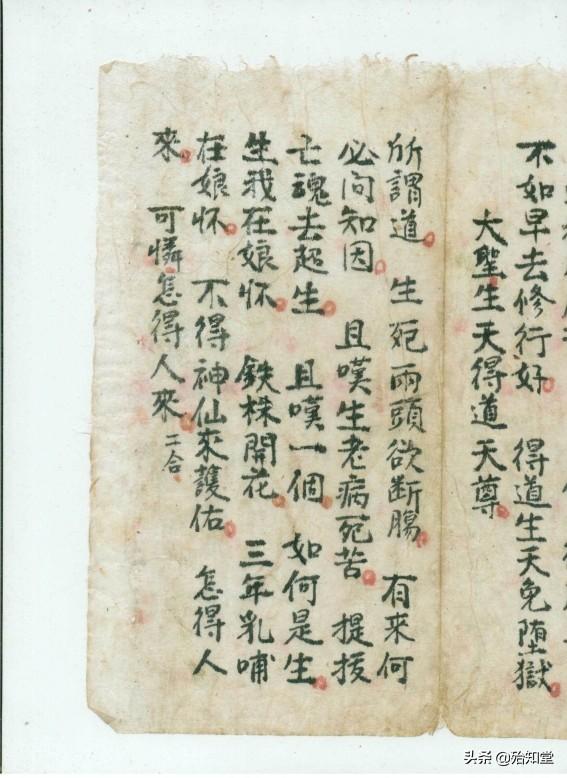 不如早去修行好 得道生天免堕獄
大聖生天得道天尊
所謂道 生死兩頭欲断腸 有来何
必问知因 且嘆生老病死苦 提拔
亡魂去超生 且嘆一個 如何是生
生我在娘怀 鉄株開花 三年乳哺
在娘怀 不得神仙來護佑 怎得人
來 可憐怎得人來 二合
头条 @殆知堂